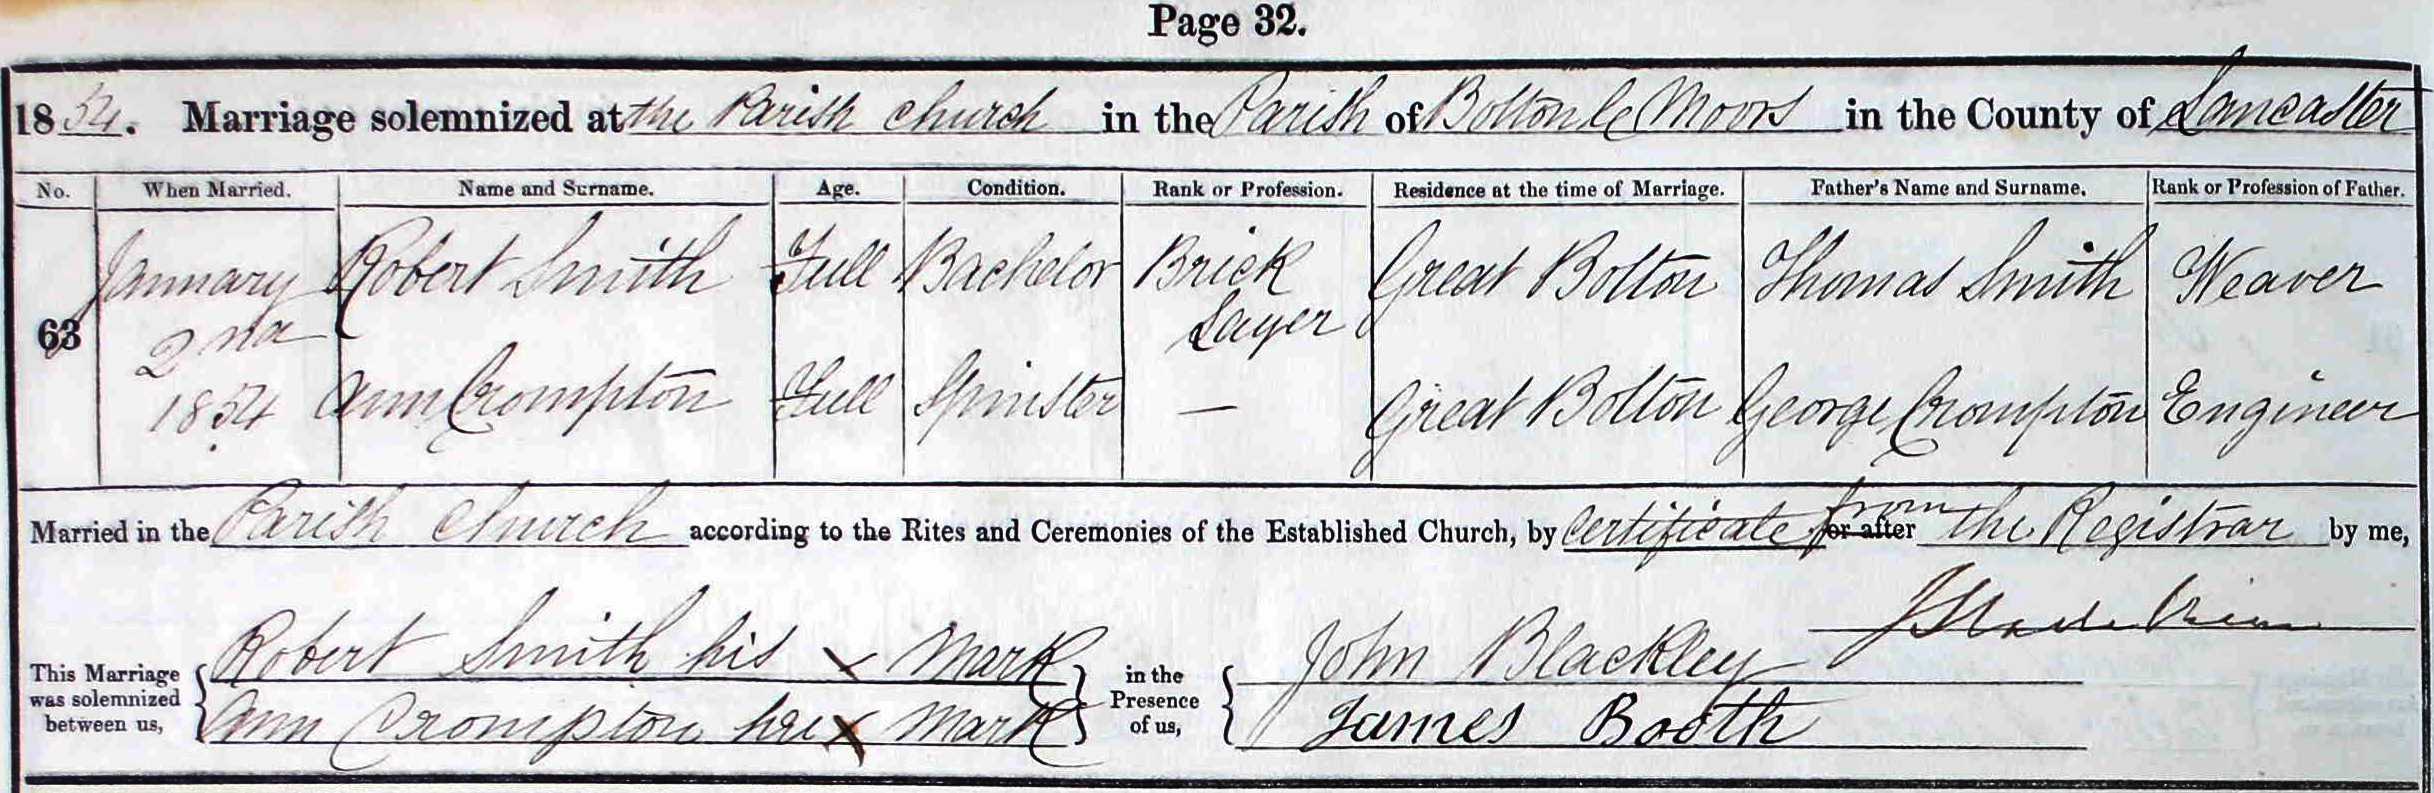 Page 32.
1854. Marriage solemnized at the Parish Church in the Parish of Bolton le Moors in the County of Lancaster
No. When Married. Name and Surname. Age. Condition. Rank or Profession. Residence at the time of Marriage. Father's Name and Surname. Rank or Profession of Father.
63 January 2nd 1854 Robert Smith Full Bachelor Brick Layer Great Bolton Thomas Smith Weaver
Ann Crompton Full Spinster — Great Bolton George Crompton Engineer
Married in the Parish Church according to the Rites and Ceremonies of the Established Church, by Certificate from or after the Registrar by me,
This Marriage was solemnized between us, Robert Smith his x Mark
Ann Crompton her x Mark
in the Presence of us, John Blackley
James Booth